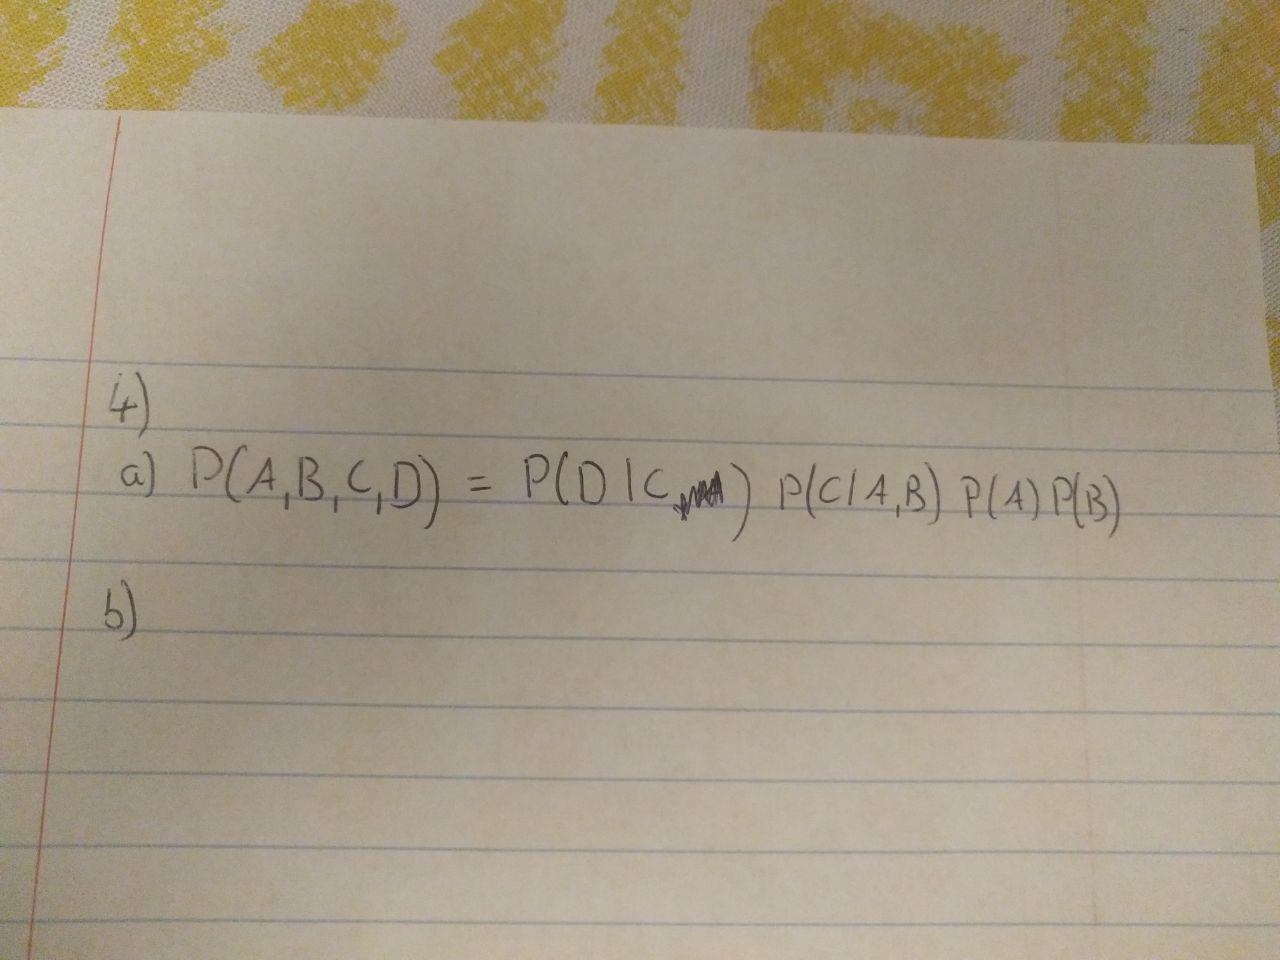 4)
a) P(A,B,C,D) = P(D|C) P(C|A,B) P(A) P(B)
b)